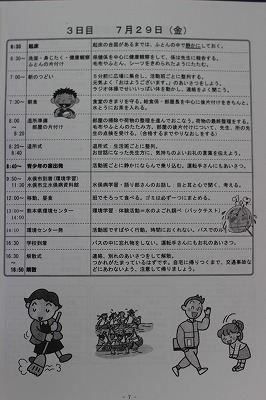 3日目　７月２９日（金）
6:30 起床 起床の合図があるまでは、ふとんの中で静かにしておく。
6:30 ～ 洗面・身じたく・健康観察 ふとんの片付け 保健係を中心に健康観察をして、係は先生に報告する。
毛布やふとん、シーツをきめられたようにたたむ。
7:00 朝のつどい ５分前に広場に集合し、活動班ごとに整列する。
元気よく「おはようございます。」のあいさつをする。
ラジオ体操でせいいっぱい体を動かし、連絡をよく聞こう。
7:30 朝食 食堂のきまりを守る。給食係・部屋長を中心に後片付けをきちんと。
水とうにお茶を入れる。
退所準備 部屋の片付け 部屋の掃除や荷物の整理を進んでおこなう。荷物の最終確認をする。
8:20 退所式 退所式：生活班ごとに整列。
8:40 青少年の家出発 活動班ごとに静かにならんで乗り込む。運転手さんにもあいさつ。
水俣市到着（環境学習）
水俣市立水俣病資料館 水俣病学習・語り部さんのお話し 目と耳と心で聞く、考える。
12:00 移動、昼食 班でそろって食べる。ゴミは必ず一つにまとめる。
13:00 熊本県環境センター 環境学習：体験活動＝水のよごれ調べ（パックテスト）
14:10 環境センター発 活動班ですばやく行動。時間におくれない。バスでのル
16:30 学校到着 バスの中に忘れ物をしない。運転手さんにもお礼のあいさつ。
16:35 ～ 解散式 連絡、別れのあいさつをして解散。
16:50 解散 つかれがたまっているはずです。自宅に帰りつくまで、交通事故などにあわないよう、注意して帰りましょう。
- 7 -